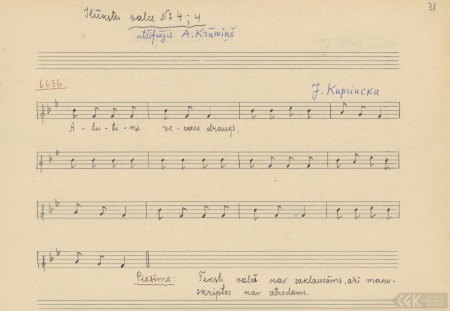 31
Ilūkstes valce № 4; 4
atšifrējis A. Krūmiņš
6636
J. Kuprincka
A - lu - ti - ņi ve - cais draugs.
Piezīme: Teksts valcē nav saklausāms, arī manu-
skriptos nav atrodams.